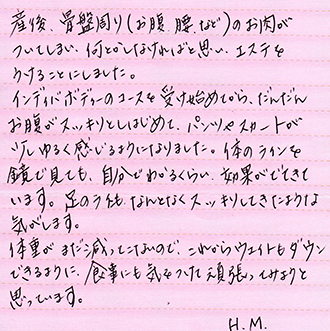 産後、骨盤周り(お腹、腰、など)のお肉が
ついてしまい、何とかしなければと思い、エステを
うけることにしました。
インディバボディーのコースを受け始めてから、だんだん
お腹がスッキリとしはじめて、パンツやスカートが
少しゆるく感じるようになりました。体のラインを
鏡で見ても、自分でわかるくらい、効果がでてきて
います。足のラインも、なんとなくスッキリしてきたような
気がします。
体重がまだ減ってこないので、これからウェイトもダウン
できるように、食事にも気をつけて頑張ってみようと
思っています。
H.M.